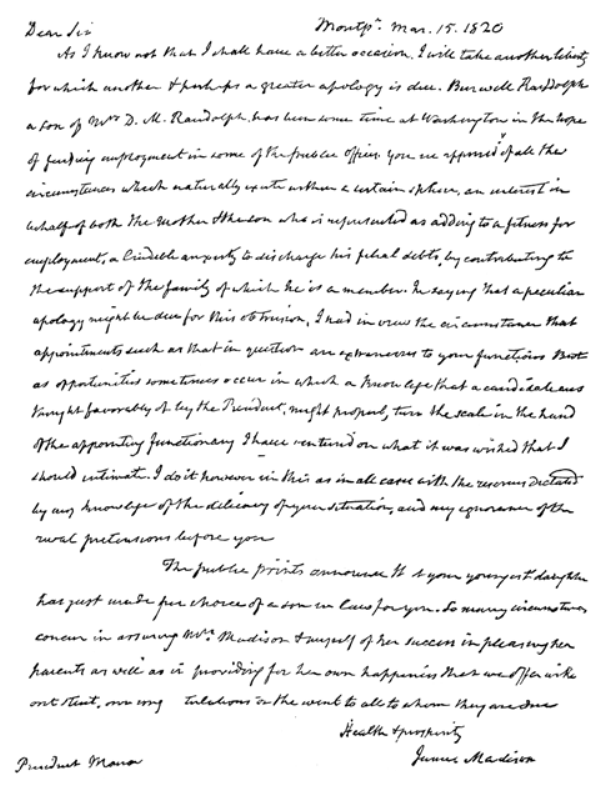 Dear Sir
Montpr. Mar. 15. 1820
As I know not that I shall have a better occasion, I will take another liberty
for which another & perhaps a greater apology is due. Burwell Randolph
a son of Mrs D. M. Randolph, has been some time at Washington in the hope
of finding employment in some of the public offices. you are apprised of all the
circumstances which naturally excite within a certain sphere, an interest in
behalf of both the mother & the son who is represented as adding to a fitness for
employment, a laudable anxiety to discharge his filial debts, by contributing to
the support of the family of which he is a member. In saying that a peculiar
apology might be due for this obtrusion, I had in view the circumstance that
appointments such as that in question are extraneous to your functions But
as opportunities sometimes occur in which a knowledge that a candidate was
thought favorably of by the President, might properly turn the scale in the hand
of the appointing functionary I have ventured on what it was wished that I
should intimate. I do it however in this as in all cases with the reserves dictated
by my knowledge of the delicacy of your situation, and my ignorance of the
rival pretensions before you
The public prints announce that your youngest daughter
has just made her choice of a son in law for you. So many circumstances
concur in assuring Mrs. Madison & myself of her success in pleasing her
parents as well as in providing for her own happiness that we offer
our tulations on the event to all to whom they are due
Health & prosperity
James Madison
President Monroe